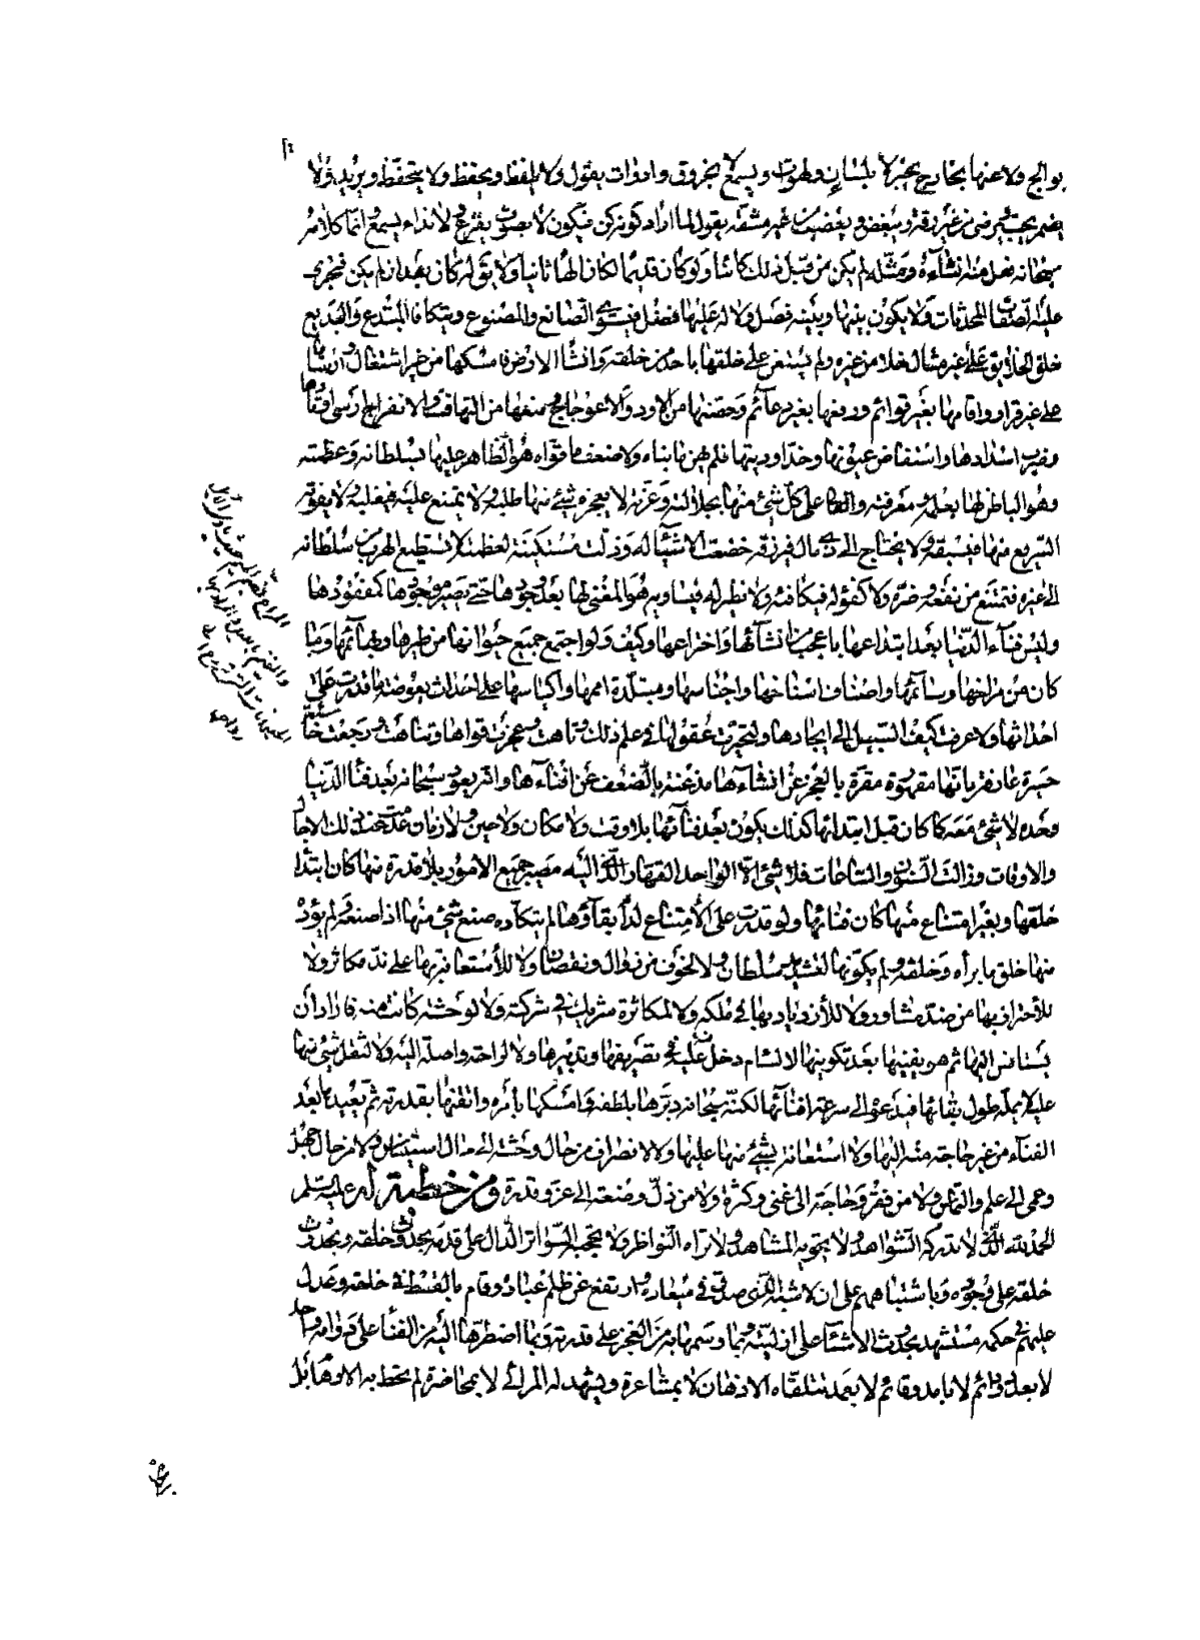 بوالج ولا عنها بخارج يخبر لا بلسان ولهوات ويسمع لا بخروق وادوات يقول ولا يلفظ ويحفظ ولا يتحفظ ويريد ولا
يضمر يحب ويرضى من غير رقة ويبغض ويغضب من غير مشقة يقول لما اراد كونه كن فيكون لا بصوت يقرع ولا نداء يسمع انما كلامه
سبحانه فعل منه انشأه ومثله لم يكن من قبل ذلك كائنا ولو كان قديما لكان الها ثانيا ولا يقال كان بعد ان لم يكن فتجري
عليه الصفات المحدثات ولا يكون بينها وبينه فصل ولا له عليها فضل فيستوي الصانع والمصنوع ويتكافا المبتدع والبديع
خلق الخلايق على غير مثال خلا من غيره ولم يستعن على خلقها باحد من خلقه وانشأ الارض فامسكها من غير اشتغال وارساها
على غير قرار واقامها بغير قوائم ورفعها بغير دعائم وحصنها من الاود والاعوجاج ومنعها من التهافت والانفراج ارسى اوتادها
وضرب اسدادها واستفاض عيونها وخد اوديتها فلم يهن ما بناه ولا ضعف ما قواه هو الظاهر عليها بسلطانه وعظمته
وهو الباطن لها بعلمه ومعرفته والعالي على كل شئ منها بجلاله وعزته لا يعجزه شئ منها طلبه ولا يمتنع عليه فيغلبه ولا يفوته
السريع منها فيسبقه ولا يحتاج الى ذي مال فيرزقه خضعت الاشياء له وذلت مستكينة لعظمته لا تستطيع الهرب من سلطانه
الى غيره فتمتنع من نفعه وضره ولا كفؤ له فيكافئه ولا نظير له فيساويه هو المفني لها بعد وجودها حتى يصير موجودها كمفقودها
وليس فناء الدنيا بعد ابتداعها باعجب من انشائها واختراعها وكيف ولو اجتمع جميع حيوانها من طيرها وبهائمها وما
كان من مراحها وسائمها واصناف اسناخها واجناسها ومتبلدة اممها واكياسها على احداث بعوضة ما قدرت على
احداثها ولا عرفت كيف السبيل الى ايجادها ولتحيرت عقولها في علم ذلك وتاهت وعجزت قواها وتناهت ورجعت خاسئة
حسيرة عارفة بانها مقهورة مقرة بالعجز عن انشاءها مذعنة بالضعف عن افناءها وانه يعود سبحانه بعد فناء الدنيا
وحده لا شئ معه كما كان قبل ابتدائها كذلك يكون بعد فنائها بلا وقت ولا مكان ولا حين ولا زمان عدمت عند ذلك الاجال
والاوقات وزالت السنون والساعات فلا شئ الا الواحد القهار الذي اليه مصير جميع الامور بلا قدرة منها كان ابتداء
خلقها وبغير امتناع منها كان فنائها ولو قدرت على الامتناع لدام بقاؤها لم يتكاده صنع شئ منها اذ صنعه ولم يؤده
منها خلق ما برأه وخلقه ولم يكونها لتشديد سلطان ولا لخوف من زوال ونقصان ولا للاستعانة بها على ند مكاثر ولا
للاحتراز بها من ضد مثاور ولا للازدياد بها في ملكه ولا لمكاثرة شريك في شركته ولا لوحشة كانت منه فاراد ان
يستانس اليها ثم هو يفنيها بعد تكوينها لا لسئام دخل عليه في تصريفها وتدبيرها ولا لراحة واصلة اليه ولا لثقل شئ منها
عليه لا يمله طول بقائها فيدعوه الى سرعة افنائها لكنه سبحانه دبرها بلطفه وامسكها بأمره واتقنها بقدرته ثم يعيدها بعد
الفناء من غير حاجة منه اليها ولا استعانة بشئ منها عليها ولا لانصراف من حال وحشة الى حال استيناس ولا من حال جهل
وعمى الى علم والتماس ولا من فقر وحاجة الى غنى وكثرة ولا من ذل وضعة الى عز وقدرة ومن خطبة له عليه السلم
الحمد لله الذي لا تدركه الشواهد ولا تحويه المشاهد ولا تراه النواظر ولا تحجبه السواتر الدال على قدمه بحدوث خلقه وبحدوث
خلقه على وجوده وباشتباههم على ان لا شبه له الذي صدق في ميعاده وارتفع عن ظلم عباده وقام بالقسط في خلقه وعدل
عليهم في حكمه مستشهد بحدوث الاشياء على ازليته وبما وسمها به من العجز على قدرته وبما اضطرها اليه من الفناء على دوامه واحد
لا بعدد ودائم لا بامد وقائم لا بعمد تتلقاه الاذهان لا بمشاعرة وتشهد له المرائي لا بمحاضرة لم تحط به الاوهام بل